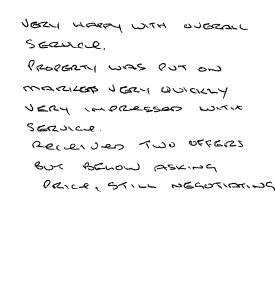 VERY HAPPY WITH OVERALL
SERVICE.
PROPERTY WAS PUT ON
MARKET VERY QUICKLY
VERY IMPRESSED WITH
SERVICE.
RECEIVED TWO OFFERS
BUT BELOW ASKING
PRICE, STILL NEGOTIATING